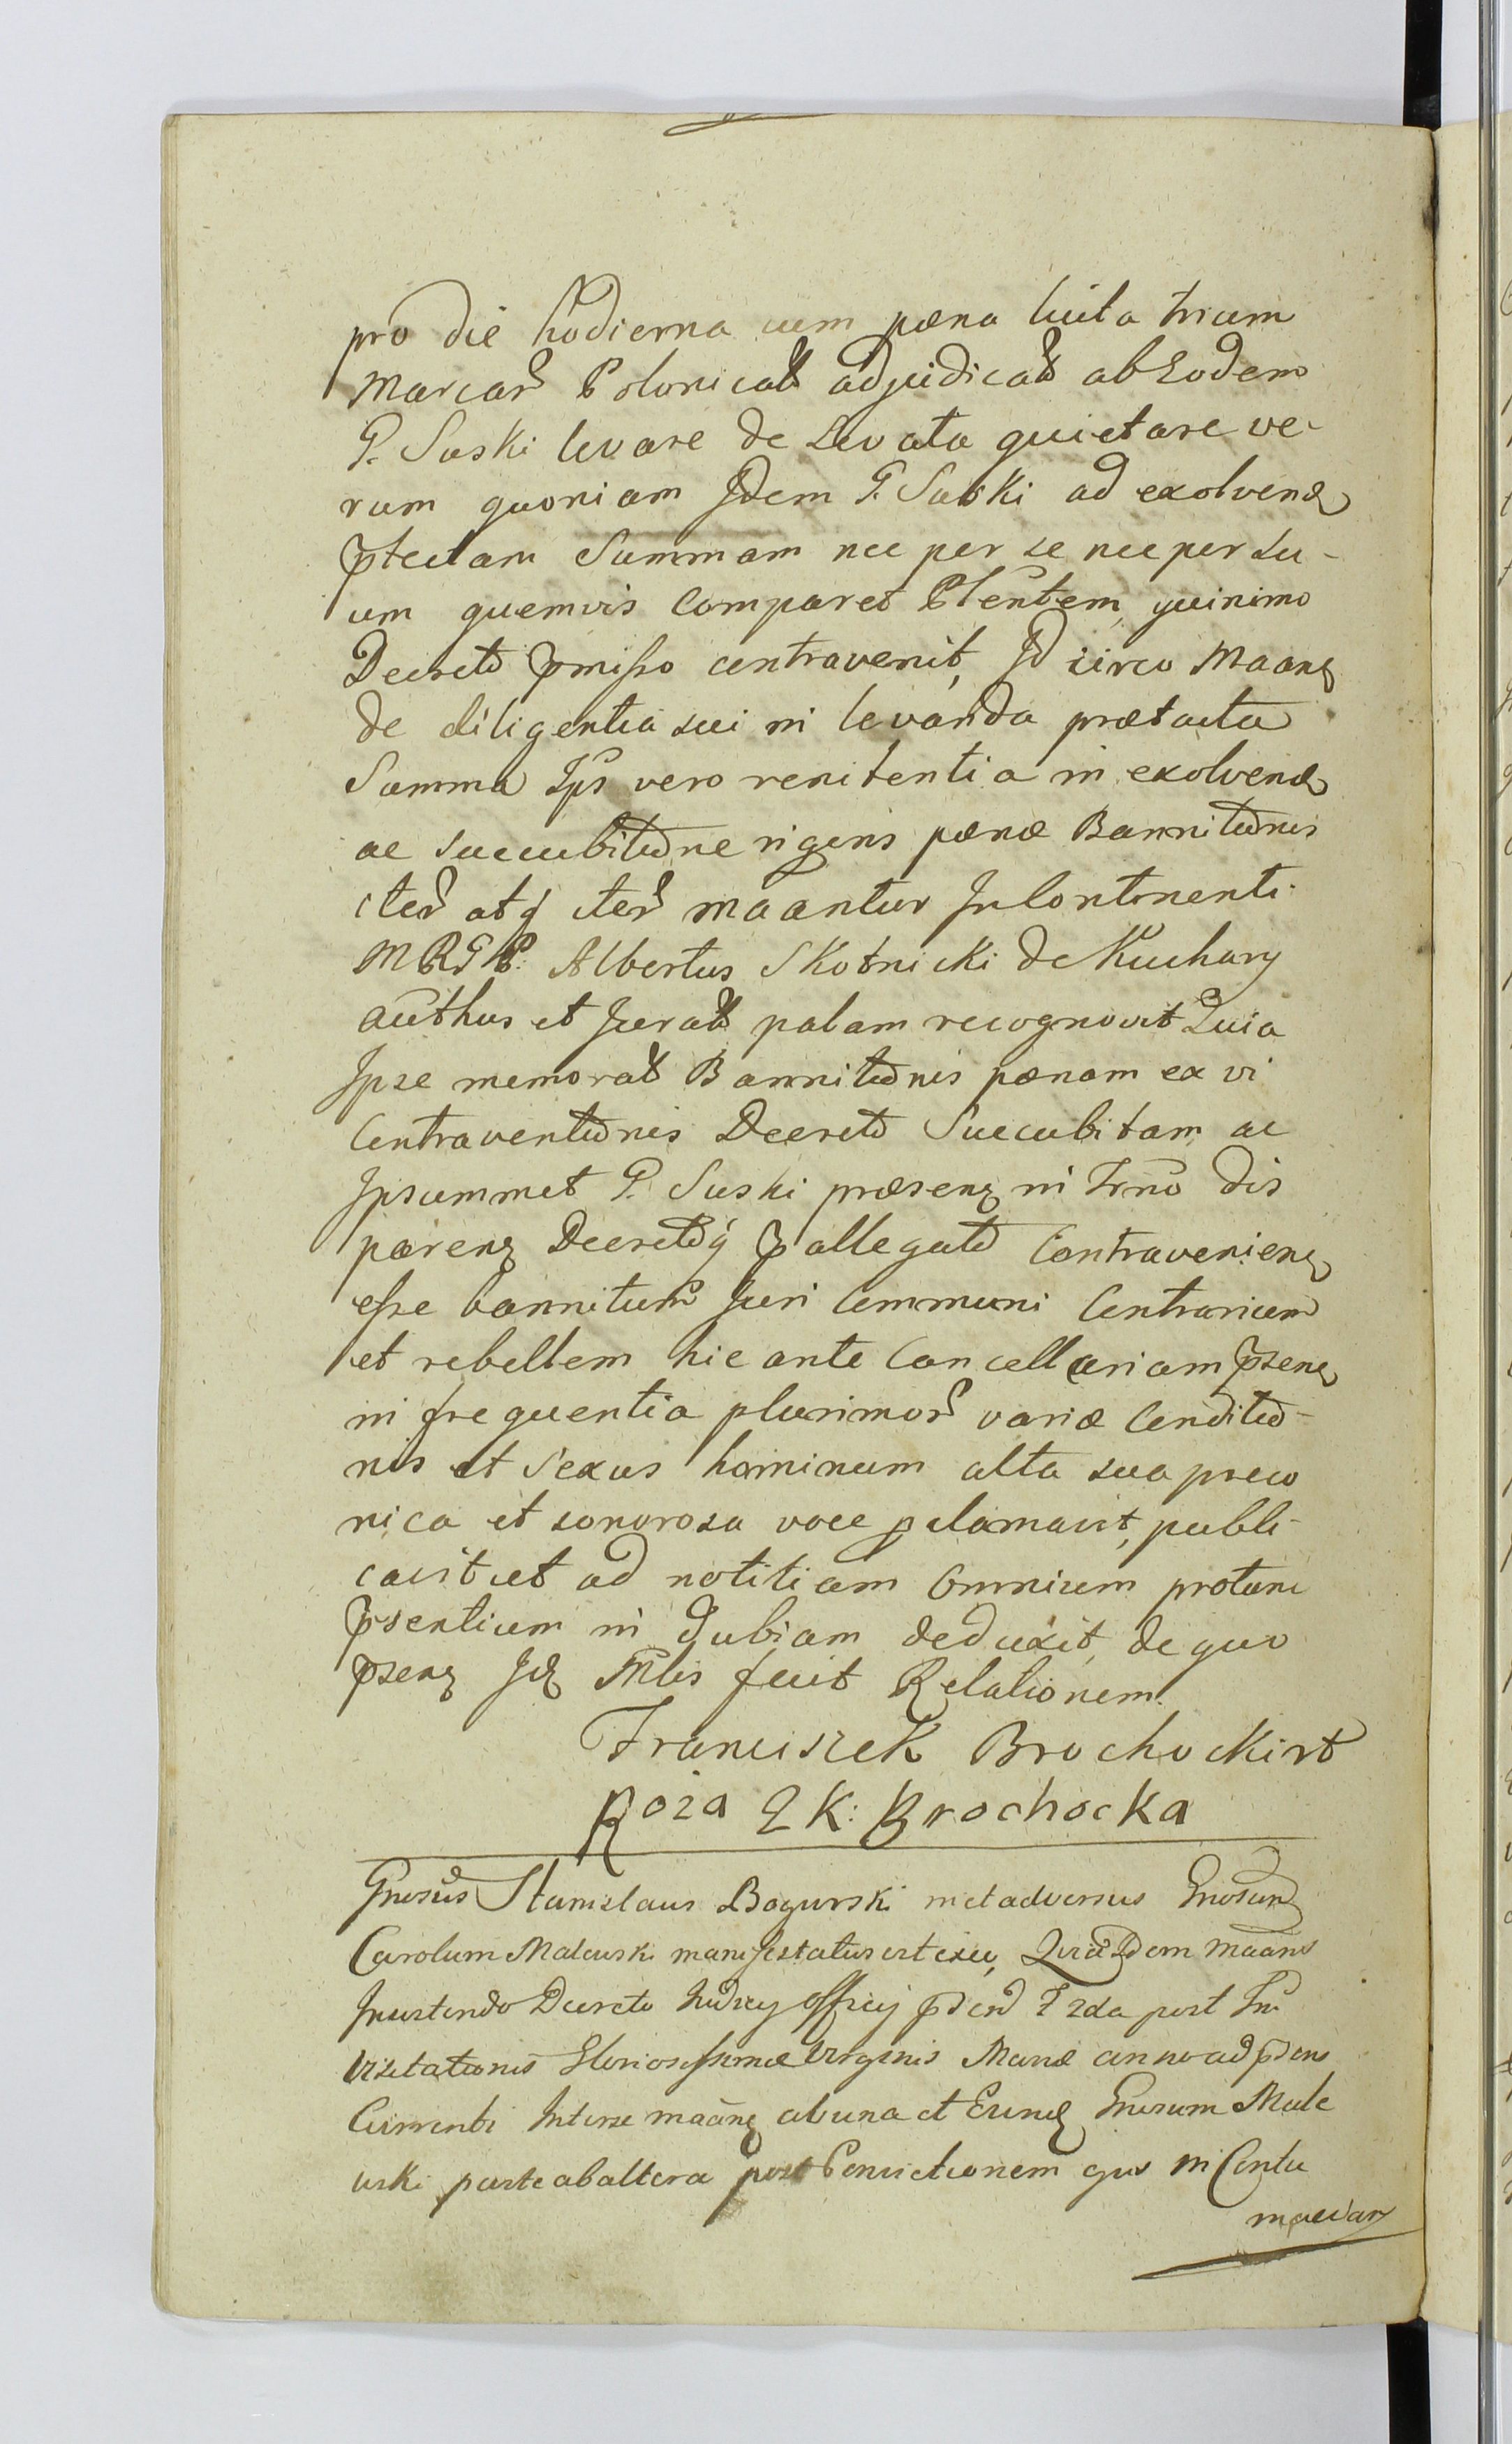 pro die hodierna cum pœna luita trium
Marcar Polonical adjudical ab Eodem
G. Suski levare de Levata quietare ve-
rum quoniam Jdem G. Suski ad exolvend
ptactam Summam nec per se nec per su-
um quemvis Comparet Plentem, quinimo
Decreto pmisso contravenit, Jd circo Maans
de diligentia sui in levanda prœtacta
Summa Ips vero renitentia in exolvend
ac succubitione rigoris pœnæ Bannitionis
iter atq iter maantur Jn Continenti
MRGP. Albertus Skotnicki de Kuchary
authus et Jurat palam recognovit Quia
Jpse memorat Bannitionis pœnam ex vi
Contraventionis Decreto Succubitam ac
Jpsummet G. Suski præsens in Trno dis
parens Decretoq pallegato Contraveniens
esse bannitum Juri Communi Contrarium
et rebellem hic ante Cancellariam psens
in frequentia plurimor variæ Conditio-
nis et Sexus hominum alta sua preco
nica et sonorosa voce pclamavit, publi-
cavit et ad notitiam Omnium protunc
psentium in dubiam deduxit, de quo
psens Jd Mlis fecit Relationem.
Franciszek Brochocki rt
Roza Z K: Brochocka
Gnosus Stanislaus Bogurski met adversus Gnosum
Carolum Maleuski manifestatus est exec, Quia Idem Maans
Jnsistendo Decreto Judicy officij psend F 2da post Fm
Visitationis Gloriosissimæ Virginis Mariæ anno ad psens
Currenti Interse maans ab una et Eund Gnosum Male
uski parte ab altera post Convictionem ejus in Contu
maciam